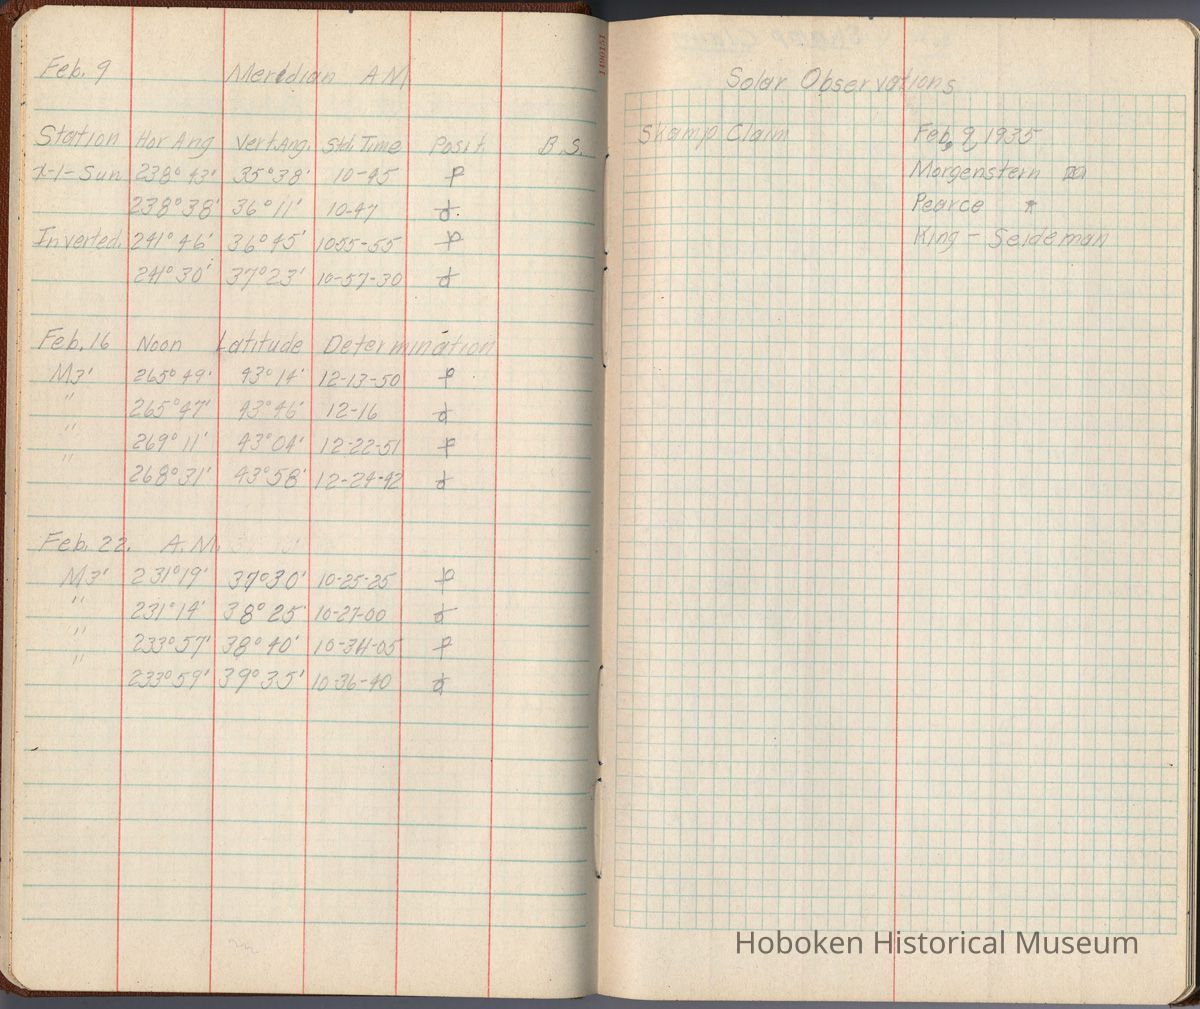 Feb. 9 Meridian A M
Station Hor Ang Vert.Ang. Std. Time Posit B.S.
1-1-Sun 238° 43' 35° 38' 10-45
238° 38' 36° 11' 10-47
Inverted. 241° 46' 36° 45' 1055-55
241° 30' 37° 23' 10-57-30
Feb. 16 Noon Latitude Determination
M3' 265° 49' 43° 14' 12-13-50
" 265° 47' 43° 46' 12-16
" 269° 11' 43° 04' 12-22-51
" 268° 31' 43° 58' 12-24-42
Feb. 22. A.M.
M3' 231° 19' 37° 30' 10-25-25
" 231° 14' 38° 25' 10-27-00
" 233° 57' 38° 40' 10-34-05
" 233° 59' 39° 35' 10-36-40
1490151
Solar Observations
Skamp Claim Feb, 9 1935
Morgenstern
Pearce
King - Seideman
Hoboken Historical Museum